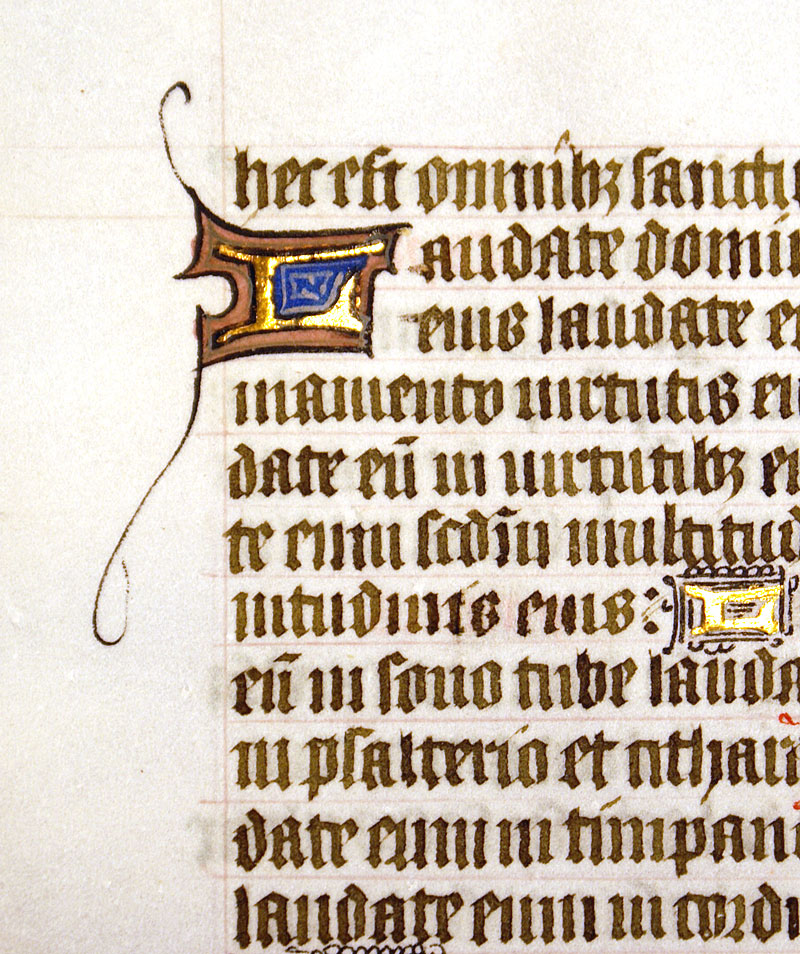 hec est omnibꝫ sancti
Laudate domin
eius laudate e
mamento uirtutis ei
date eū in uirtutibꝫ e
te eum scdm multitud
nitudinis eius: L
eū in sono tube lauda
in psalterio et cithar
date eum in timpan
laudate eum in cordi